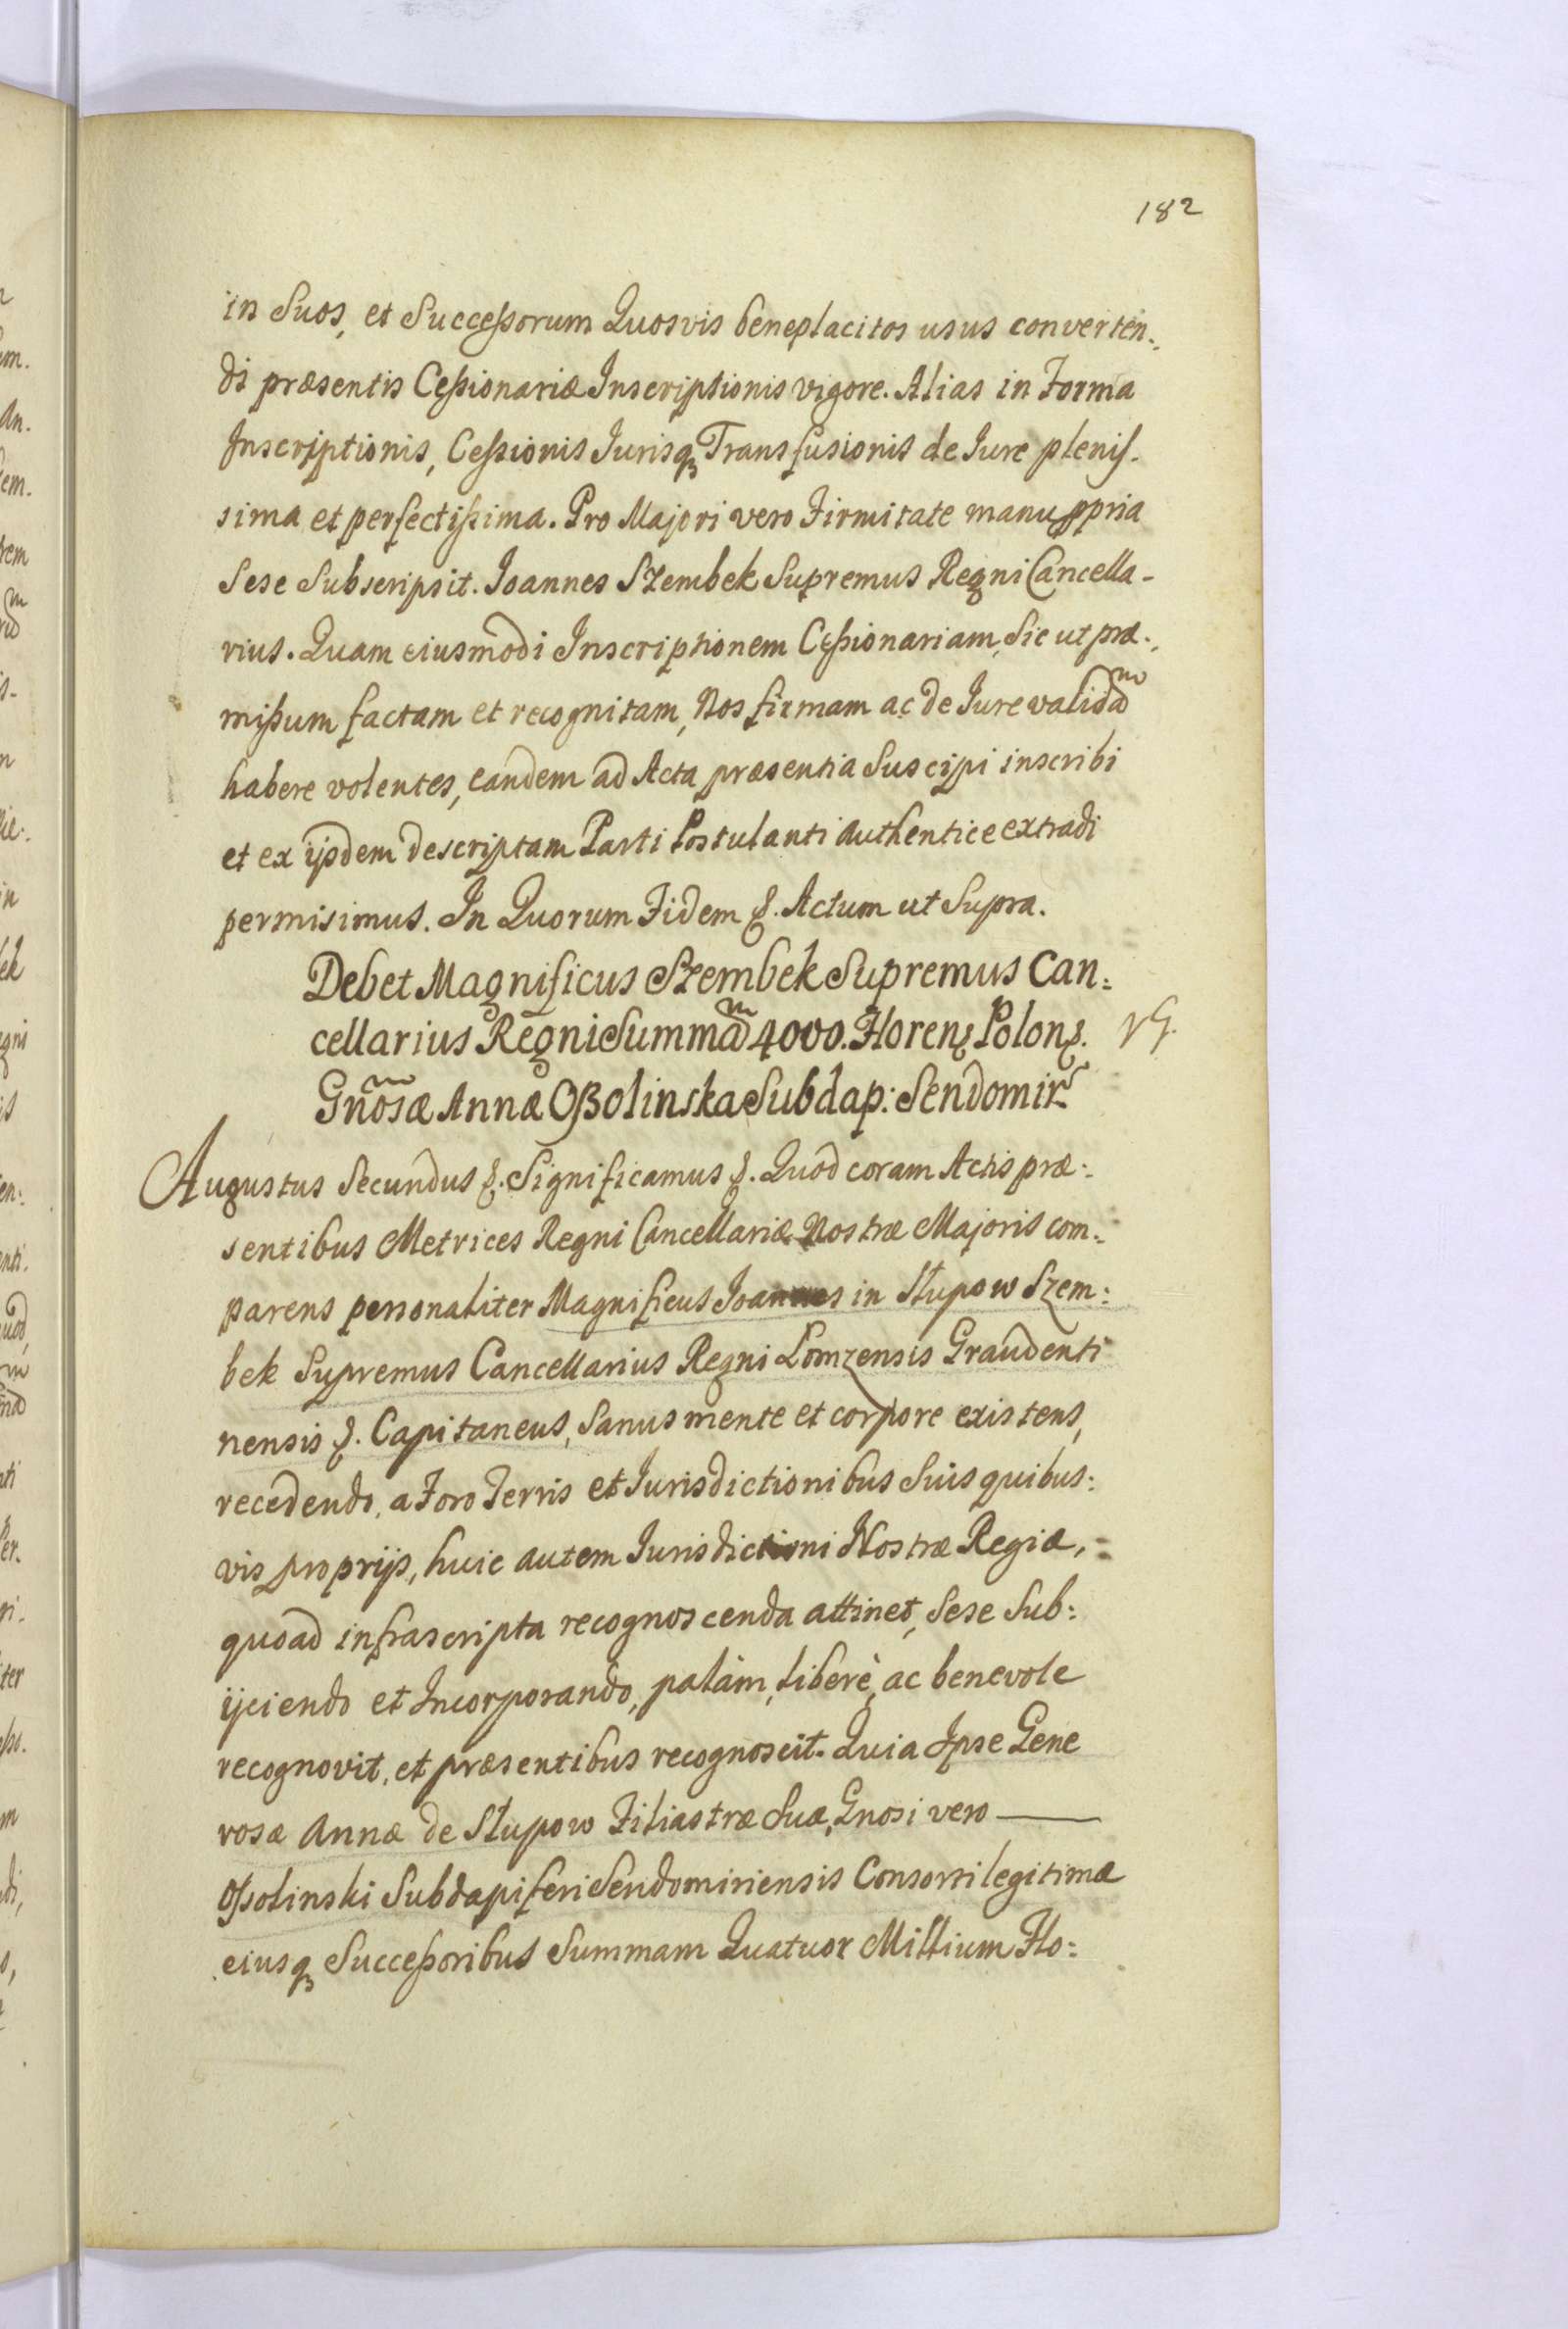 182
in Suos, et Successorum Quosvis beneplacitos usus converten:
di præsentis Cessionariæ Inscriptionis vigore. Alias in Forma
Inscriptionis, Cessionis Jurisqꝫ Transfusionis de Jure plenis-
sima et perfectissima. Pro Majori vero Firmitate manu ppria
Sese Subscripsit. Joannes Szembek Supremus Regni Cancella-
rius. Quam eiusmodi Inscriptionem Cessionariam, Sic ut præ:
missum factam et recognitam, Nos firmam ac de Jure validam
habere volentes, eandem ad Acta præsentia Suscipi inscribi
et ex ijsdem descriptam Parti Postulanti Authentice extradi
permisimus. In Quorum Fidem &. Actum ut Supra.
Debet Magnificus Szembek Supremus Can:
cellarius Regni Summam 4000. Floren: Polon:
Gnosæ Annæ Ossolinska Subdap: Sendomir
Augustus Secundus &. Significamus &. Quod coram Actis præ:
sentibus Metrices Regni Cancellariæ Nostræ Majoris com:
parens personaliter Magnificus Joannes in Słupow Szem:
bek Supremus Cancellarius Regni Lomzensis Graudenti
nensis &. Capitaneus, Sanus mente et corpore existens,
recedendo, a Foro Terris et Jurisdictionibus Suis quibus:
vis proprijs, huic autem Jurisdictioni Nostræ Regiæ,
quoad infrascripta recognoscenda attinet, Sese Sub:
ijciendo et Incorporando, palàm, liberè, ac benevole
recognovit, et præsentibus recognoscit. Quia Ipse Gene
rosæ Annæ de Słupow Filiastræ Suæ, Gnosi vero —
Ossolinski Subdapiferi Sendomiriensis Consorti legitimæ
eiusqꝫ Successoribus Summam Quatuor Millium Flo: